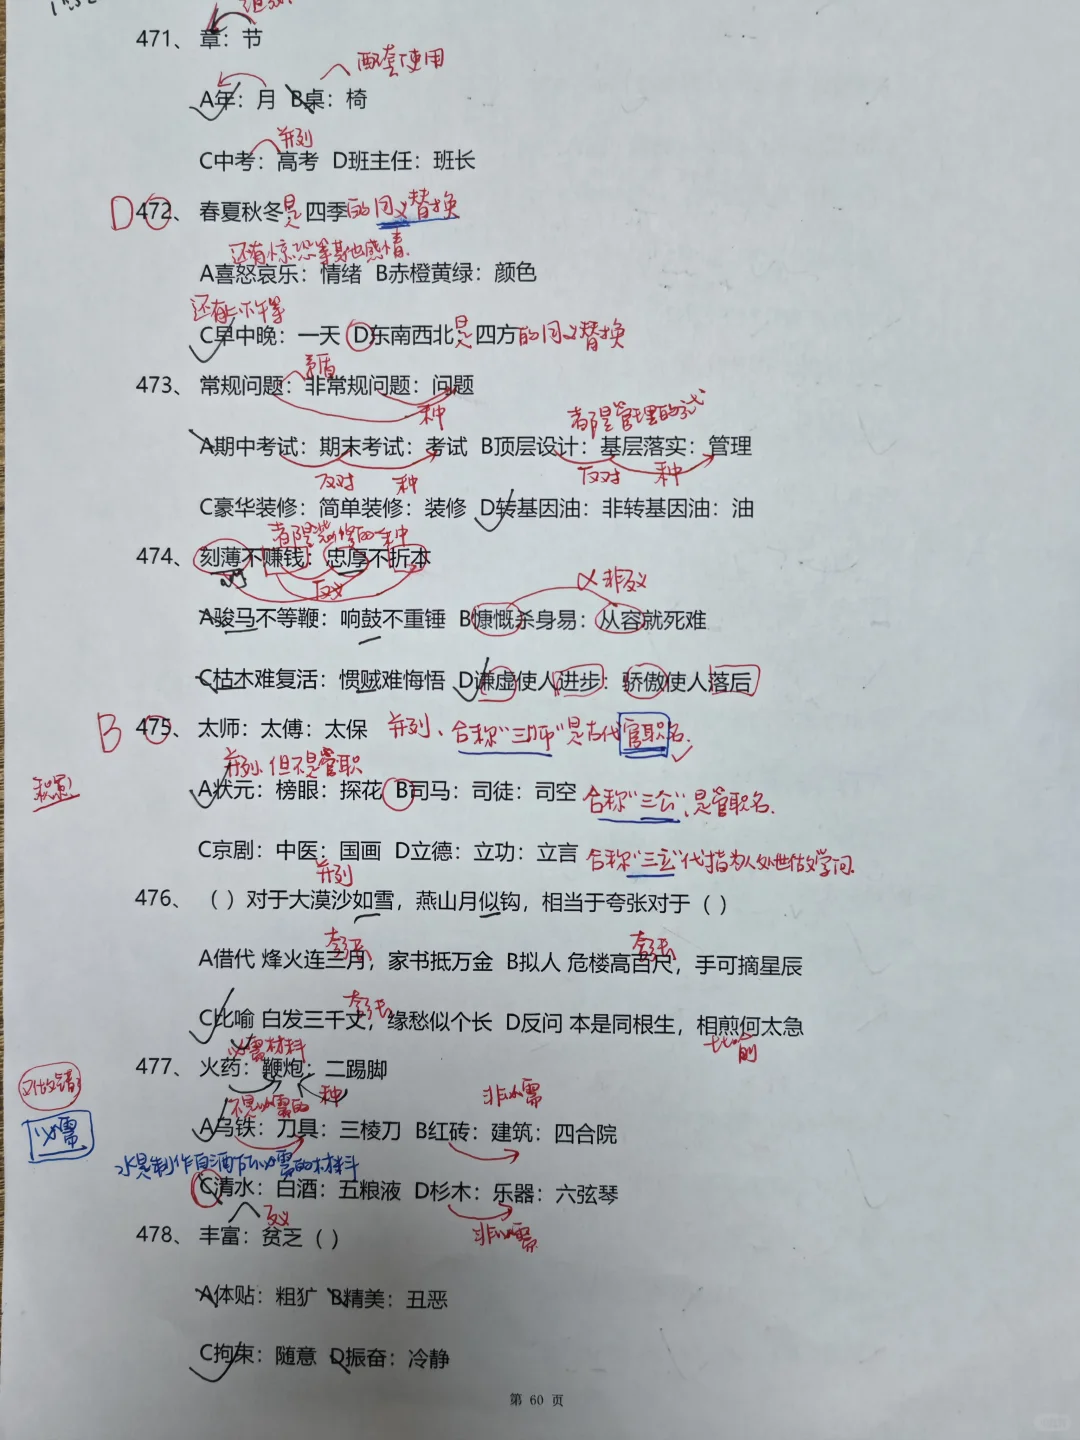 471、 章：节
配套使用
A年：月 B桌：椅
并列
C中考：高考 D班主任：班长
D 472、 春夏秋冬是四季的同义替换
还有惊恐等其他感情.
A喜怒哀乐：情绪 B赤橙黄绿：颜色
还有下午等
C早中晚：一天 D东南西北是四方的同义替换
矛盾
473、 常规问题：非常规问题：问题
种
都是管理的方式
A期中考试：期末考试：考试 B顶层设计：基层落实：管理
反对 种 反对 种
C豪华装修：简单装修：装修 D转基因油：非转基因油：油
都是装修的一种
474、 刻薄不赚钱：忠厚不折本
反义 非反义
A骏马不等鞭：响鼓不重锤 B慷慨杀身易：从容就死难
C枯木难复活：惯贼难悔悟 D谦虚使人进步：骄傲使人落后
B 475、 太师：太傅：太保 并列、合称"三师"是古代官职名.
并列、但不是官职
积累 A状元：榜眼：探花 B司马：司徒：司空 合称"三公",是官职名.
C京剧：中医：国画 D立德：立功：立言 合称"三立"代指为人处世做学问.
并列
476、 （ ）对于大漠沙如雪，燕山月似钩，相当于夸张对于（ ）
夸张 夸张
A借代 烽火连三月，家书抵万金 B拟人 危楼高百尺，手可摘星辰
夸张
C比喻 白发三千丈，缘愁似个长 D反问 本是同根生，相煎何太急
比喻
必需材料
477、 火药：鞭炮：二踢脚
又做错 种
不是必需的 非必需
必需 A乌铁：刀具：三棱刀 B红砖：建筑：四合院
水是制作白酒所必需的材料
C清水：白酒：五粮液 D杉木：乐器：六弦琴
反义 非必需
478、 丰富：贫乏（ ）
A体贴：粗犷 B精美：丑恶
C拘束：随意 D振奋：冷静
第 60 页